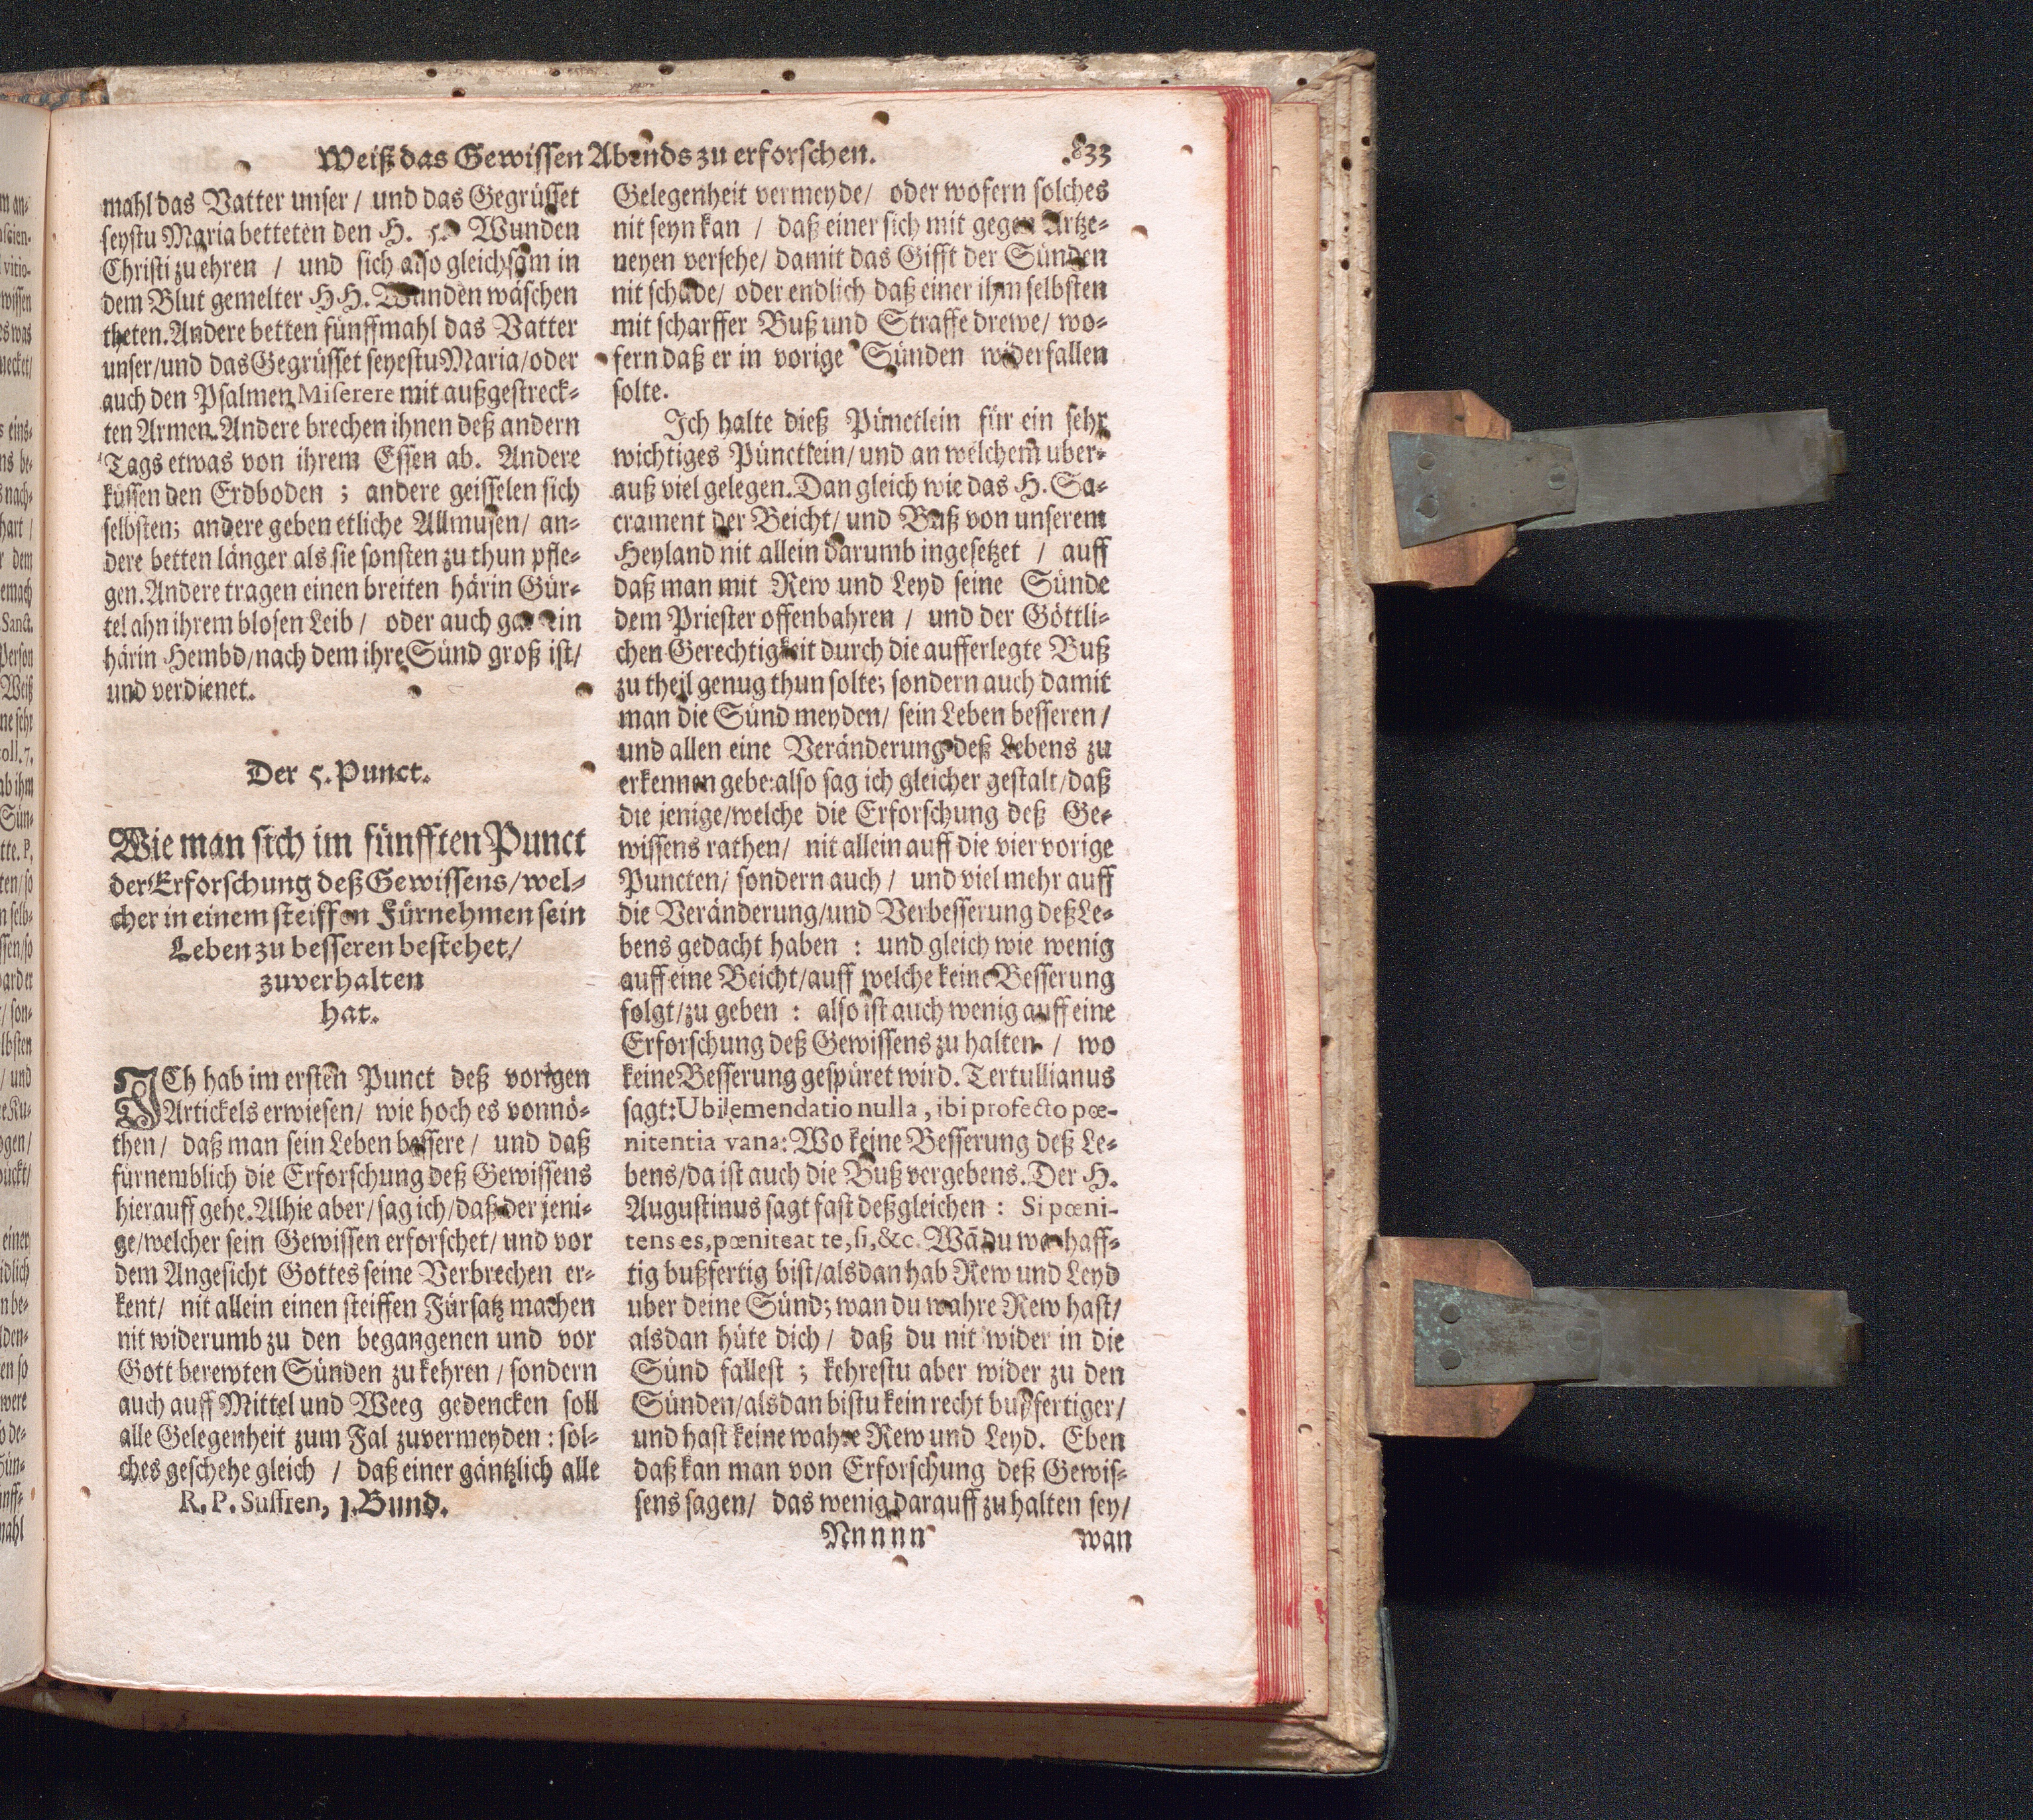 Weiß das Gewissen Abends zu erforschen. 833
mahl das Vatter unser / und das Gegrüsset
seystu Maria betteten den H. 5. Wunden
Christi zu ehren / und sich also gleichsam in
dem Blut gemelter HH. Wunden wäschen
theten. Andere betten fünffmahl das Vatter
unser/und das Gegrüsset seyestu Maria/oder
auch den Psalmen Miserere mit außgestreck-
ten Armen. Andere brechen ihnen deß andern
Tags etwas von ihrem Essen ab. Andere
küssen den Erdboden ; andere geisselen sich
selbsten; andere geben etliche Allmusen/ an-
dere betten länger als sie sonsten zu thun pfle-
gen. Andere tragen einen breiten härin Gür-
tel ahn ihrem blosen Leib / oder auch gar ein
härin Hembd/nach dem ihre Sünd groß ist/
und verdienet.
Der 5. Punct.
Wie man sich im fünfften Punct
der Erforschung deß Gewissens/wel-
cher in einem steiffen Fürnehmen sein
Leben zu besseren bestehet/
zuverhalten
hat.
ICh hab im ersten Punct deß vorigen
Artickels erwiesen/ wie hoch es vonnö-
then/ daß man sein Leben bessere/ und daß
fürnemblich die Erforschung deß Gewissens
hierauff gehe. Alhie aber/sag ich/daß der jeni-
ge/welcher sein Gewissen erforschet/ und vor
dem Angesicht Gottes seine Verbrechen er-
kent/ nit allein einen steiffen Fürsatz machen
nit widerumb zu den begangenen und vor
Gott berewten Sünden zukehren / sondern
auch auff Mittel und Weeg gedencken soll
alle Gelegenheit zum Fal zuvermeyden : sol-
ches geschehe gleich / daß einer gäntzlich alle
R. P. Suffren, 1. Bund.
Gelegenheit vermeyde/ oder wofern solches
nit seyn kan / daß einer sich mit gegen Artze-
neyen versehe/ damit das Gifft der Sünden
nit schade/ oder endlich daß einer ihm selbsten
mit scharffer Buß und Straffe drewe/ wo-
fern daß er in vorige Sünden widerfallen
solte.
Ich halte dieß Pünctlein für ein sehr
wichtiges Pünctlein/ und an welchem uber-
auß viel gelegen. Dan gleich wie das H. Sa-
crament der Beicht/ und Buß von unserem
Heyland nit allein darumb ingesetzet / auff
daß man mit Rew und Leyd seine Sünde
dem Priester offenbahren / und der Göttli-
chen Gerechtigkeit durch die aufferlegte Buß
zu theil genug thun solte; sondern auch damit
man die Sünd meyden/ sein Leben besseren/
und allen eine Veränderung deß Lebens zu
erkennen gebe: also sag ich gleicher gestalt/daß
die jenige/welche die Erforschung deß Ge-
wissens rathen/ nit allein auff die vier vorige
Puncten/ sondern auch / und viel mehr auff
die Veränderung/und Verbesserung deß Le-
bens gedacht haben : und gleich wie wenig
auff eine Beicht/auff welche keine Besserung
folgt/zu geben : also ist auch wenig auff eine
Erforschung deß Gewissens zu halten / wo
keine Besserung gespüret wird. Tertullianus
sagt: Ubi emendatio nulla, ibi profecto pœ-
nitentia vana: Wo keine Besserung deß Le-
bens/da ist auch die Buß vergebens. Der H.
Augustinus sagt fast deßgleichen : Si pœni-
tens es, pœniteat te, si, &c. Wā du warhaff-
tig bußfertig bist/alsdan hab Rew und Leyd
uber deine Sünd; wan du wahre Rew hast/
alsdan hüte dich / daß du nit wider in die
Sünd fallest ; kehrestu aber wider zu den
Sünden/alsdan bistu kein recht bußfertiger/
und hast keine wahre Rew und Leyd. Eben
daß kan man von Erforschung deß Gewis-
sens sagen/ das wenig darauff zu halten sey/
Nnnnn wan